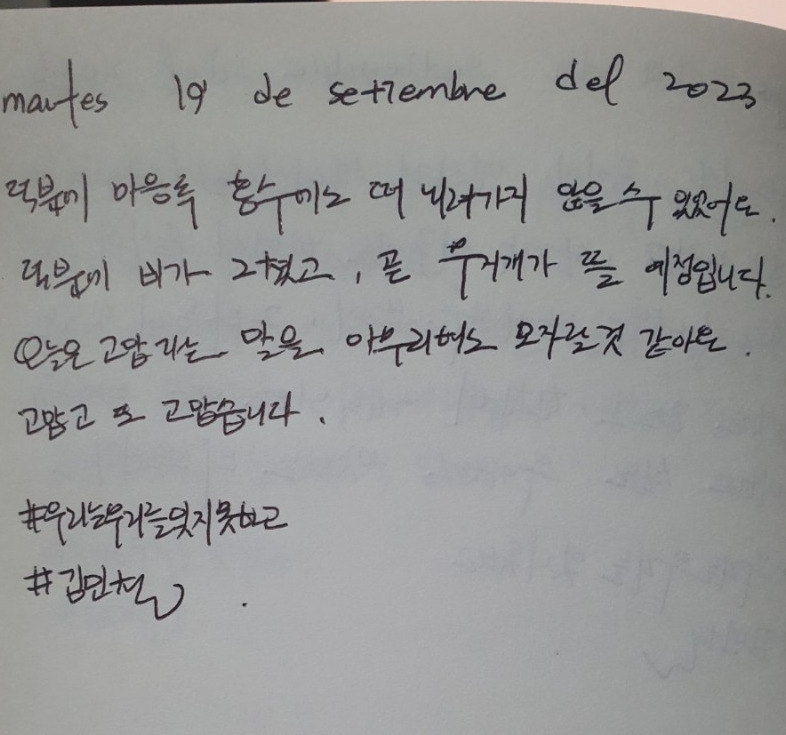 martes 19 de setiembre del 2023
덕분에 마음속 홍수에도 떠 내려가지 않을 수 있었어요.
덕분에 비가 그쳤고, 곧 무지개가 뜰 예정입니다.
오늘은 고맙다는 말을 아무리해도 모자랄것 같아요.
고맙고 또 고맙습니다.
#우리는우리를잊지못하고
#김민철